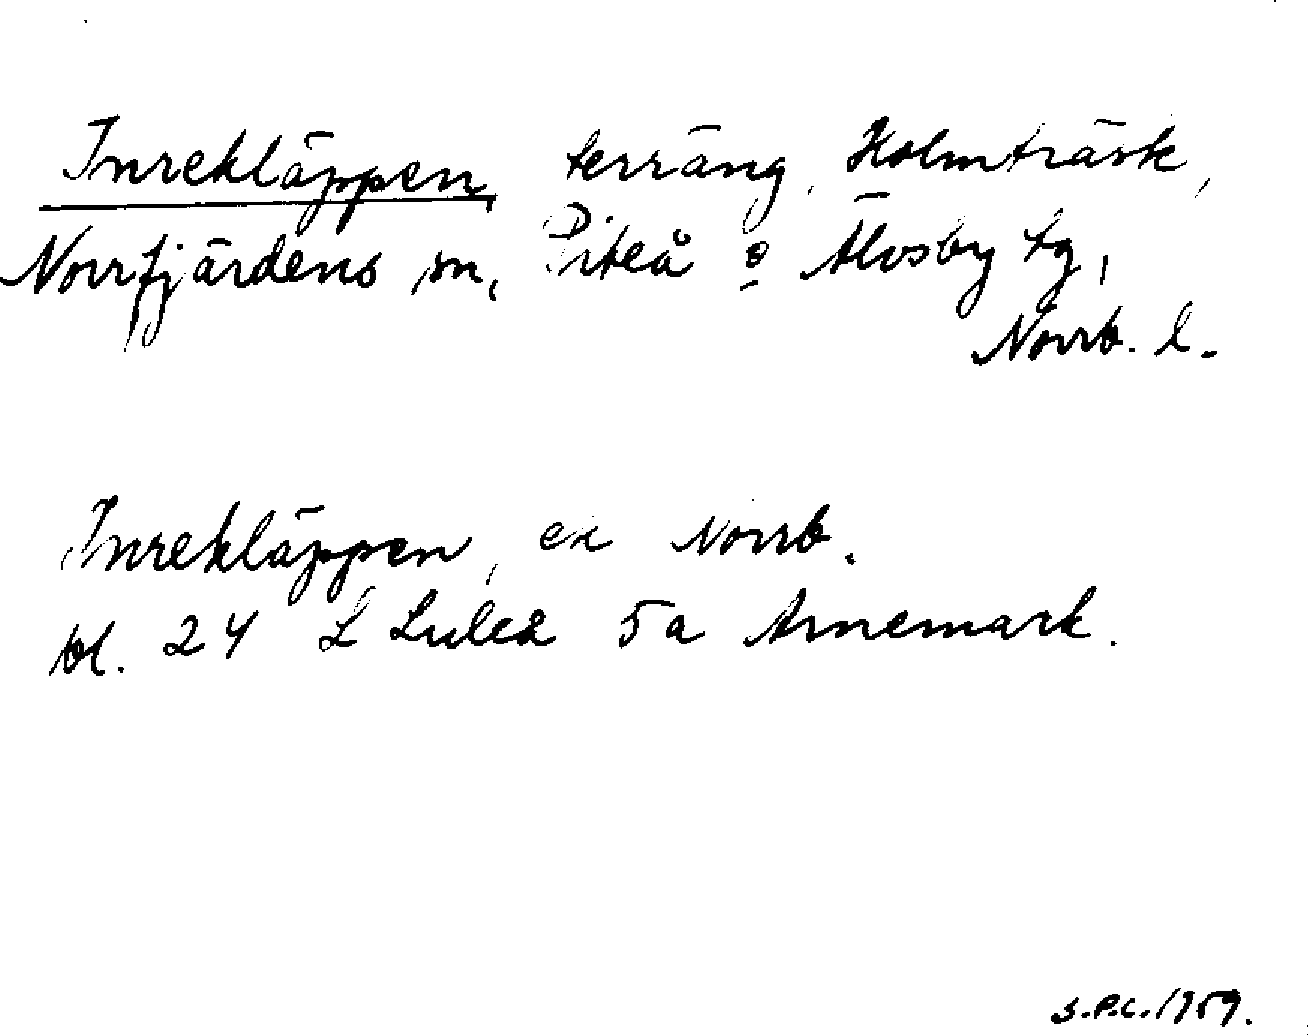 Inrekläppen, terräng, Holmträsk,
Norrfjärdens sn, Piteå o Älvsby tg,
Norrb. l.
Inrekläppen, ek Norrb.
bl. 24 L Luleå 5a Arnemark.
S.P.C. 1959.